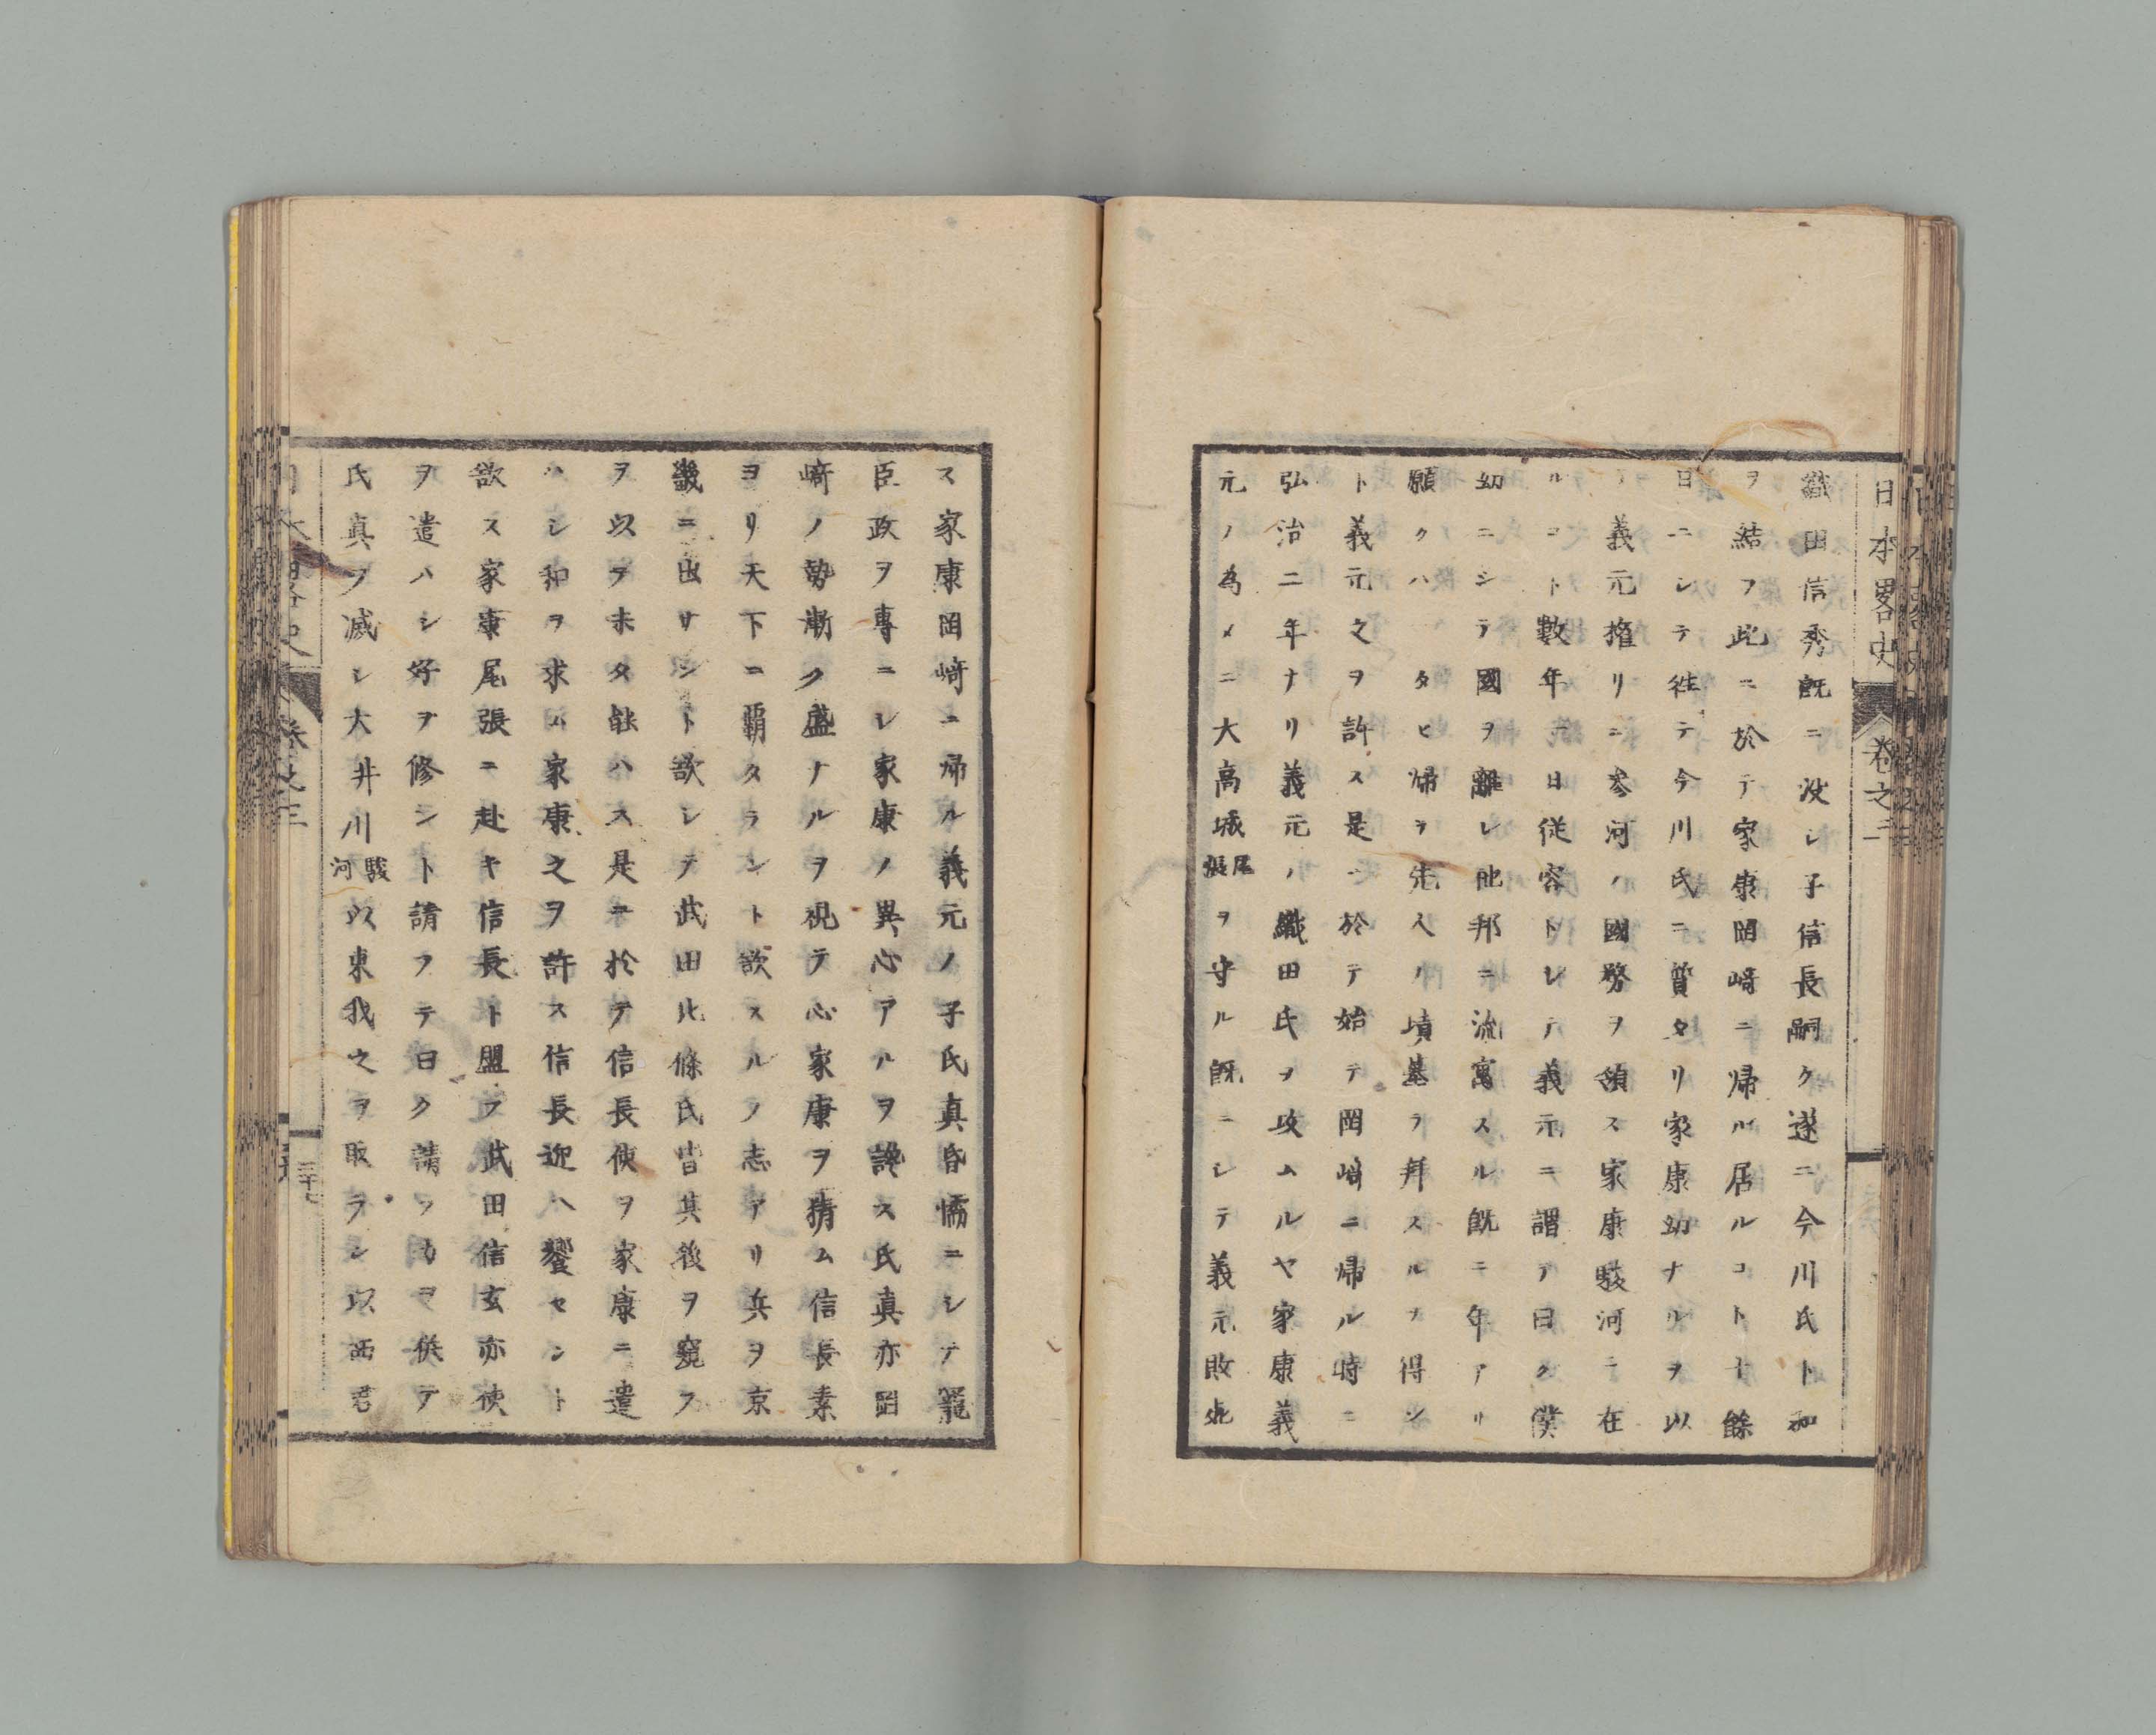 日本畧史 卷之三
織田信秀既ニ沒シ子信長嗣ク遂ニ今川氏ト和
ヲ結フ此ニ於テ家康岡﨑ニ帰ル居ルコト十餘
日ニシテ徃テ今川氏ニ質タリ家康幼ナルヲ以
テ義元權リニ参河ノ國務ヲ領ス家康駿河ニ在
ルコト數年一日従容トシテ義元ニ謂テ曰ク僕
幼ニシテ國ヲ離レ他邦ニ流寓スル既ニ年アリ
願クハ一タヒ帰ヲ先人ノ墳墓ヲ拜スルヲ得ン
ト義元之ヲ許ス是ニ於テ始テ岡﨑ニ帰ル時ニ
弘治二年ナリ義元ノ織田氏ヲ攻ムルヤ家康義
元ノ為メニ大高城尾張ヲ守ル既ニシテ義元敗死
ス家康岡﨑ニ帰ル義元ノ子氏真昏懦ニシテ寵
臣政ヲ専ニシ家康ノ異心アルヲ讒ス氏真亦岡
﨑ノ勢漸ク盛ナルヲ視テ心家康ヲ猜ム信長素
ヨリ天下ニ覇タラント欲スルノ志アリ兵ヲ京
畿ニ出サント欲シテ武田北條氏皆其後ヲ窺フ
ヲ以テ未タ能ハス是ニ於テ信長使ヲ家康ニ遣
ハシ和ヲ求ム家康之ヲ許ス信長迎ヘ饗セント
欲ス家康尾張ニ赴キ信長ト盟フ武田信玄亦使
ヲ遣ハシ好ヲ修シト請フテ曰ク請フ力ヲ併テ
氏真ヲ滅シ大井川駿河以東我之ヲ取ラン以西君
日本畧史 卷之三 三十七